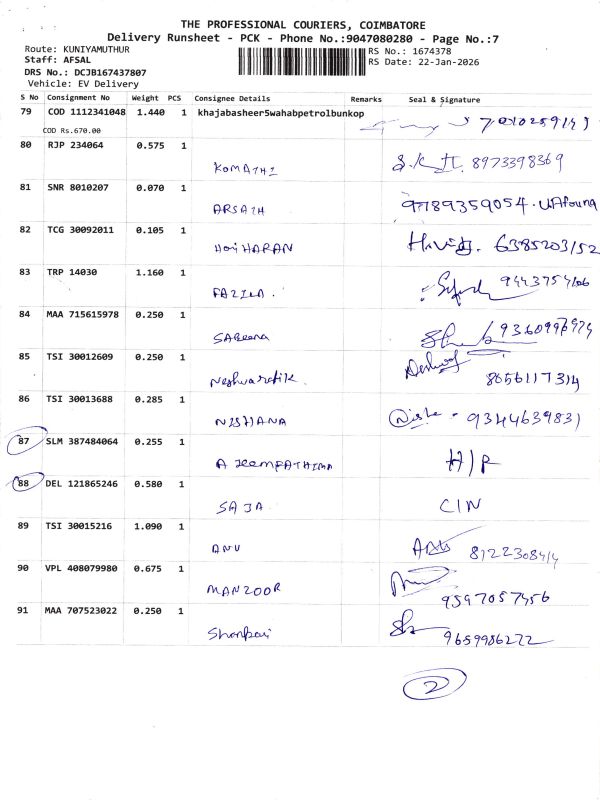 THE PROFESSIONAL COURIERS, COIMBATORE
Delivery Runsheet - PCK - Phone No.:9047080280 - Page No.:7
Route: KUNIYAMUTHUR
RS No.: 1674378
Staff: AFSAL
RS Date: 22-Jan-2026
DRS No.: DCJB167437807
Vehicle: EV Delivery
S No Consignment No Weight PCS Consignee Details Remarks Seal & Signature
79 COD 1112341048 1.440 1 khajabasheer5wahabpetrolbunkop
COD Rs.670.00
80 RJP 234064 0.575 1
KOMATHI 8973398369
81 SNR 8010207 0.070 1
ARSATH 9789359054
82 TCG 30092011 0.105 1
HARIHARAN 6385203152
83 TRP 14030 1.160 1
FAZILA. 9443754106
84 MAA 715615978 0.250 1
SABeena
85 TSI 30012609 0.250 1
Neshwarafik 8056117314
86 TSI 30013688 0.285 1
NISHANA Nisha 9344639831
87 SLM 387484064 0.255 1
AzeemFATHIMA H/R
88 DEL 121865246 0.580 1
SAJA CIN
89 TSI 30015216 1.090 1
ANU 8122308414
90 VPL 408079980 0.675 1
MANZOOR 9597057456
91 MAA 707523022 0.250 1
9659986272
2